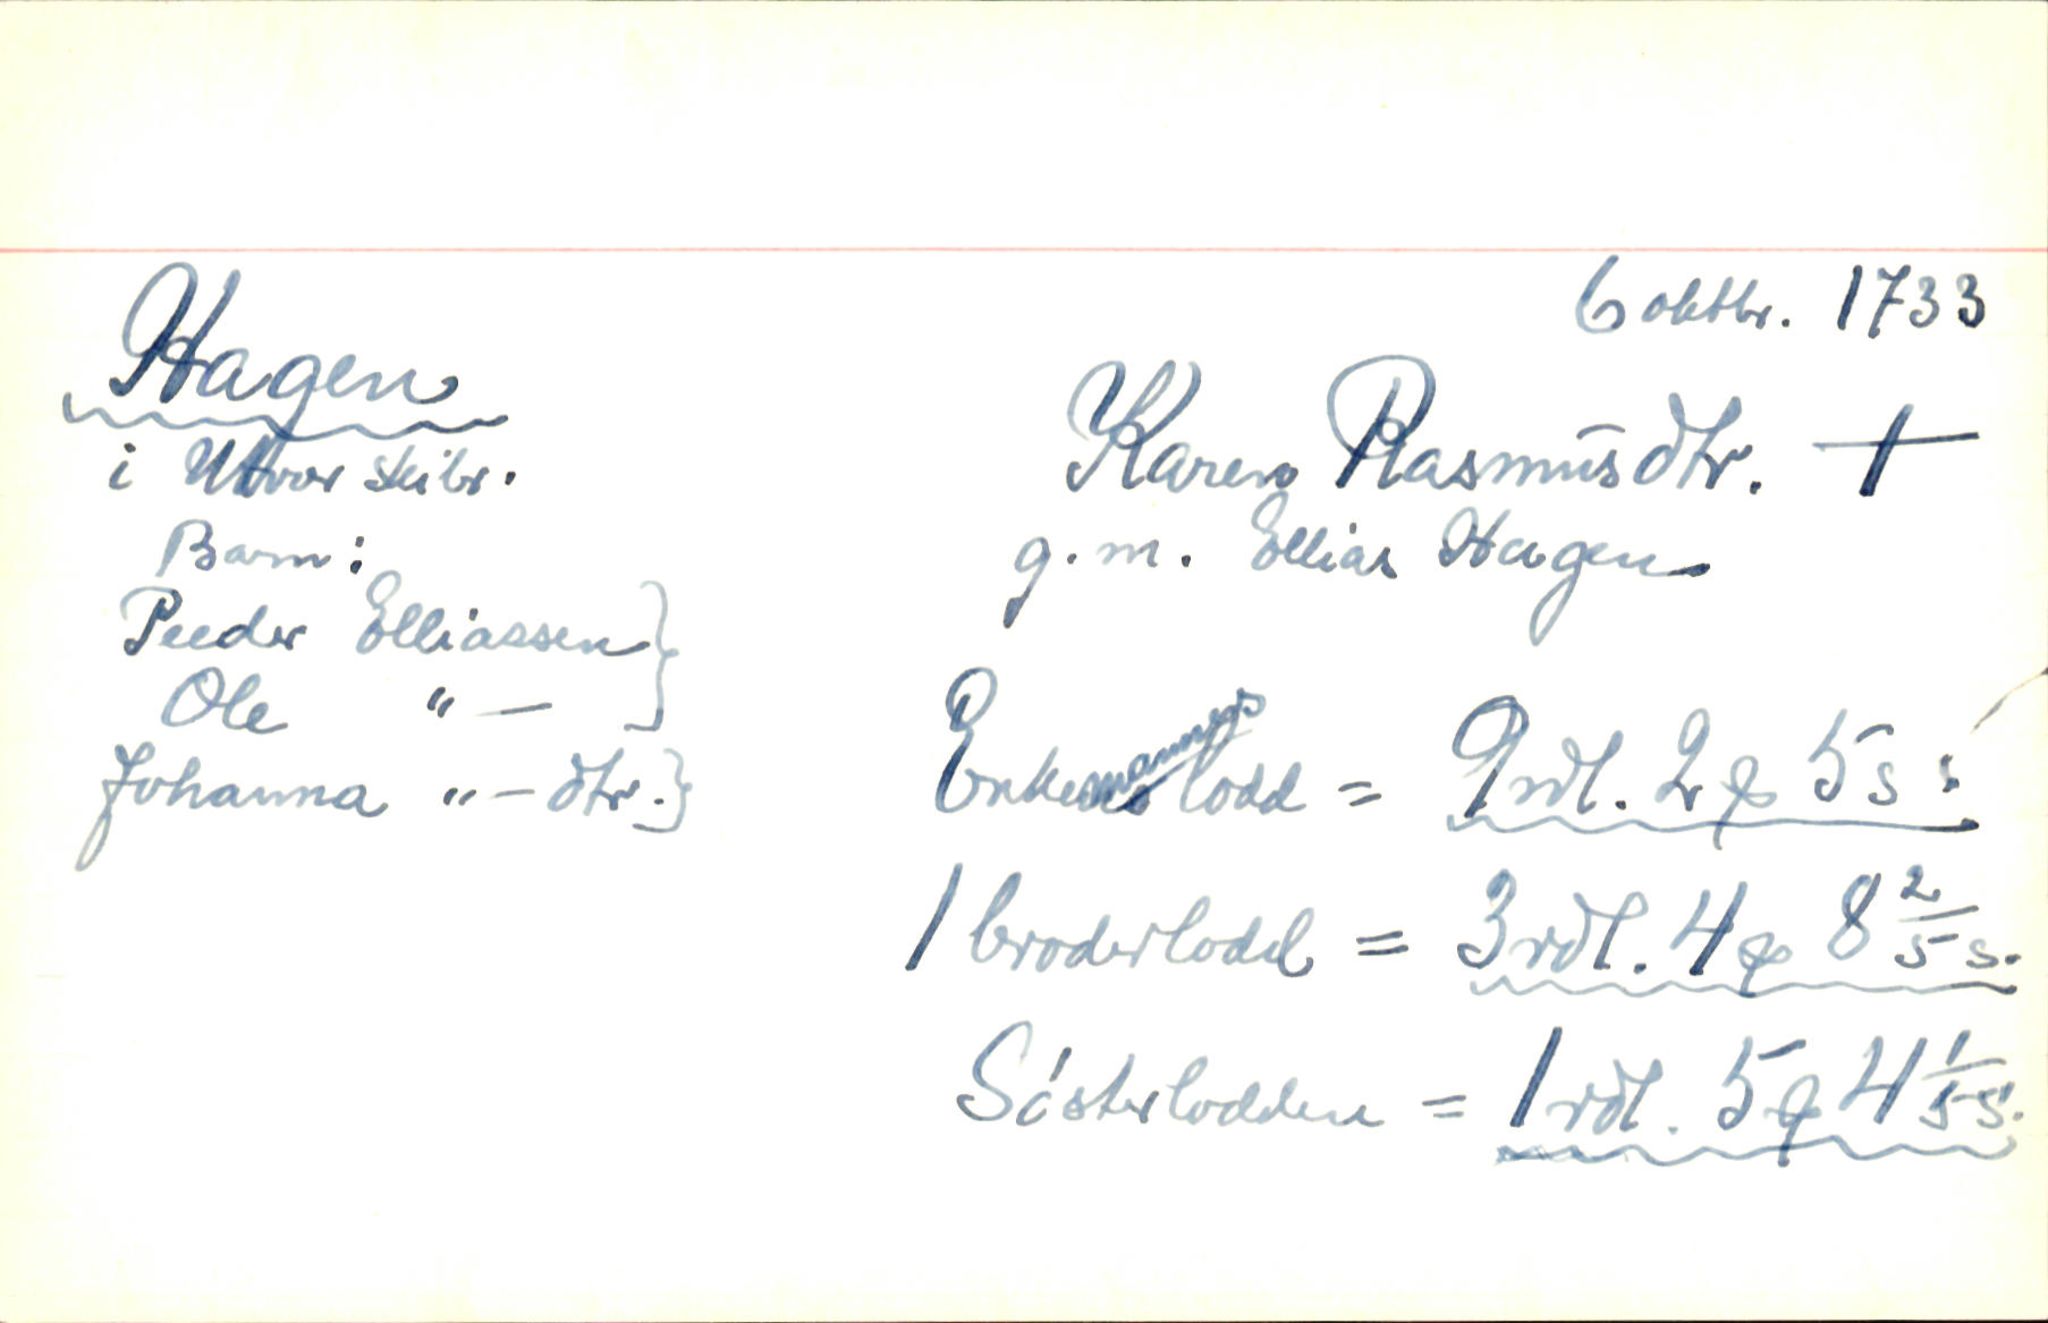 6 oktbr. 1733
Hagen
i Utvor skibr.
Barn:
Peeder Elliassen }
Ole " — }
Johanna " — dtr. }
Karen Rasmusdtr. †
g. m. Ellias Hagen
Enkemannens lodd = 9 rdl. 2 ꝗ 5 s.
1 broderlodd = 3 rdl. 4 ꝗ 8 2/5 s.
Søsterlodden = 1 rdl. 5 ꝗ 4 1/5 s.